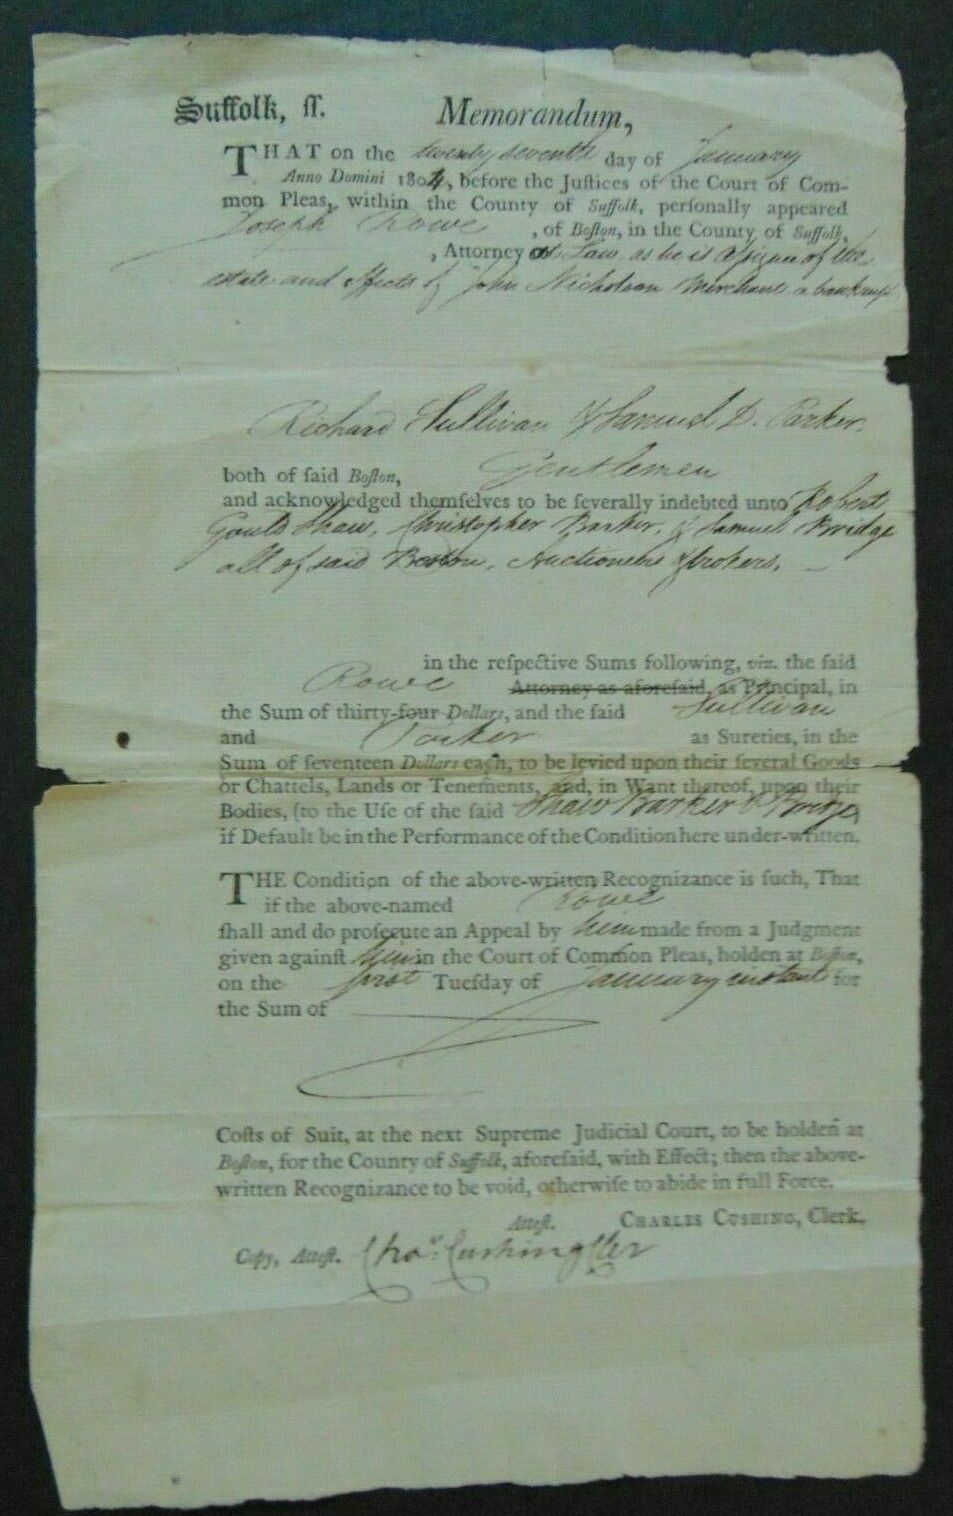 Suffolk, ſſ. Memorandum,
THAT on the twenty seventh day of January
Anno Domini 1804, before the Juſtices of the Court of Com-
mon Pleas, within the County of Suffolk, perſonally appeared
Joseph Rowe , of Boſton, in the County of Suffolk,
, Attorney at Law, as he is aſsignee of the
estate and effects of John Nicholson Merchant a bankrupt
Richard Sullivan & Samuel D. Parker,
both of ſaid Boſton, Gentlemen
and acknowledged themſelves to be ſeverally indebted unto Robert
Gould Shaw, Christopher Barker, & Samuel Bridge
all of said Boston, Auctioneers & brokers. —
in the reſpective Sums following, viz. the ſaid
Rowe Attorney as aforeſaid, as Principal, in
the Sum of thirty-four Dollars, and the ſaid Sullivan
and Parker as Sureties, in the
Sum of ſeventeen Dollars each, to be levied upon their ſeveral Goods
or Chattels, Lands or Tenements, and, in Want thereof, upon their
Bodies, (to the Uſe of the ſaid Shaw Barker & Bridge
if Default be in the Performance of the Condition here under-written.
THE Condition of the above-written Recognizance is ſuch, That
if the above-named Rowe
ſhall and do proſecute an Appeal by him made from a Judgment
given againſt him in the Court of Common Pleas, holden at Boſton,
on the first Tueſday of January instant for
the Sum of
Coſts of Suit, at the next Supreme Judicial Court, to be holden at
Boſton, for the County of Suffolk, aforeſaid, with Effect; then the above-
written Recognizance to be void, otherwiſe to abide in full Force.
Atteſt. CHARLES CUSHING, Clerk.
Copy, Atteſt. Chas Cushing Cler